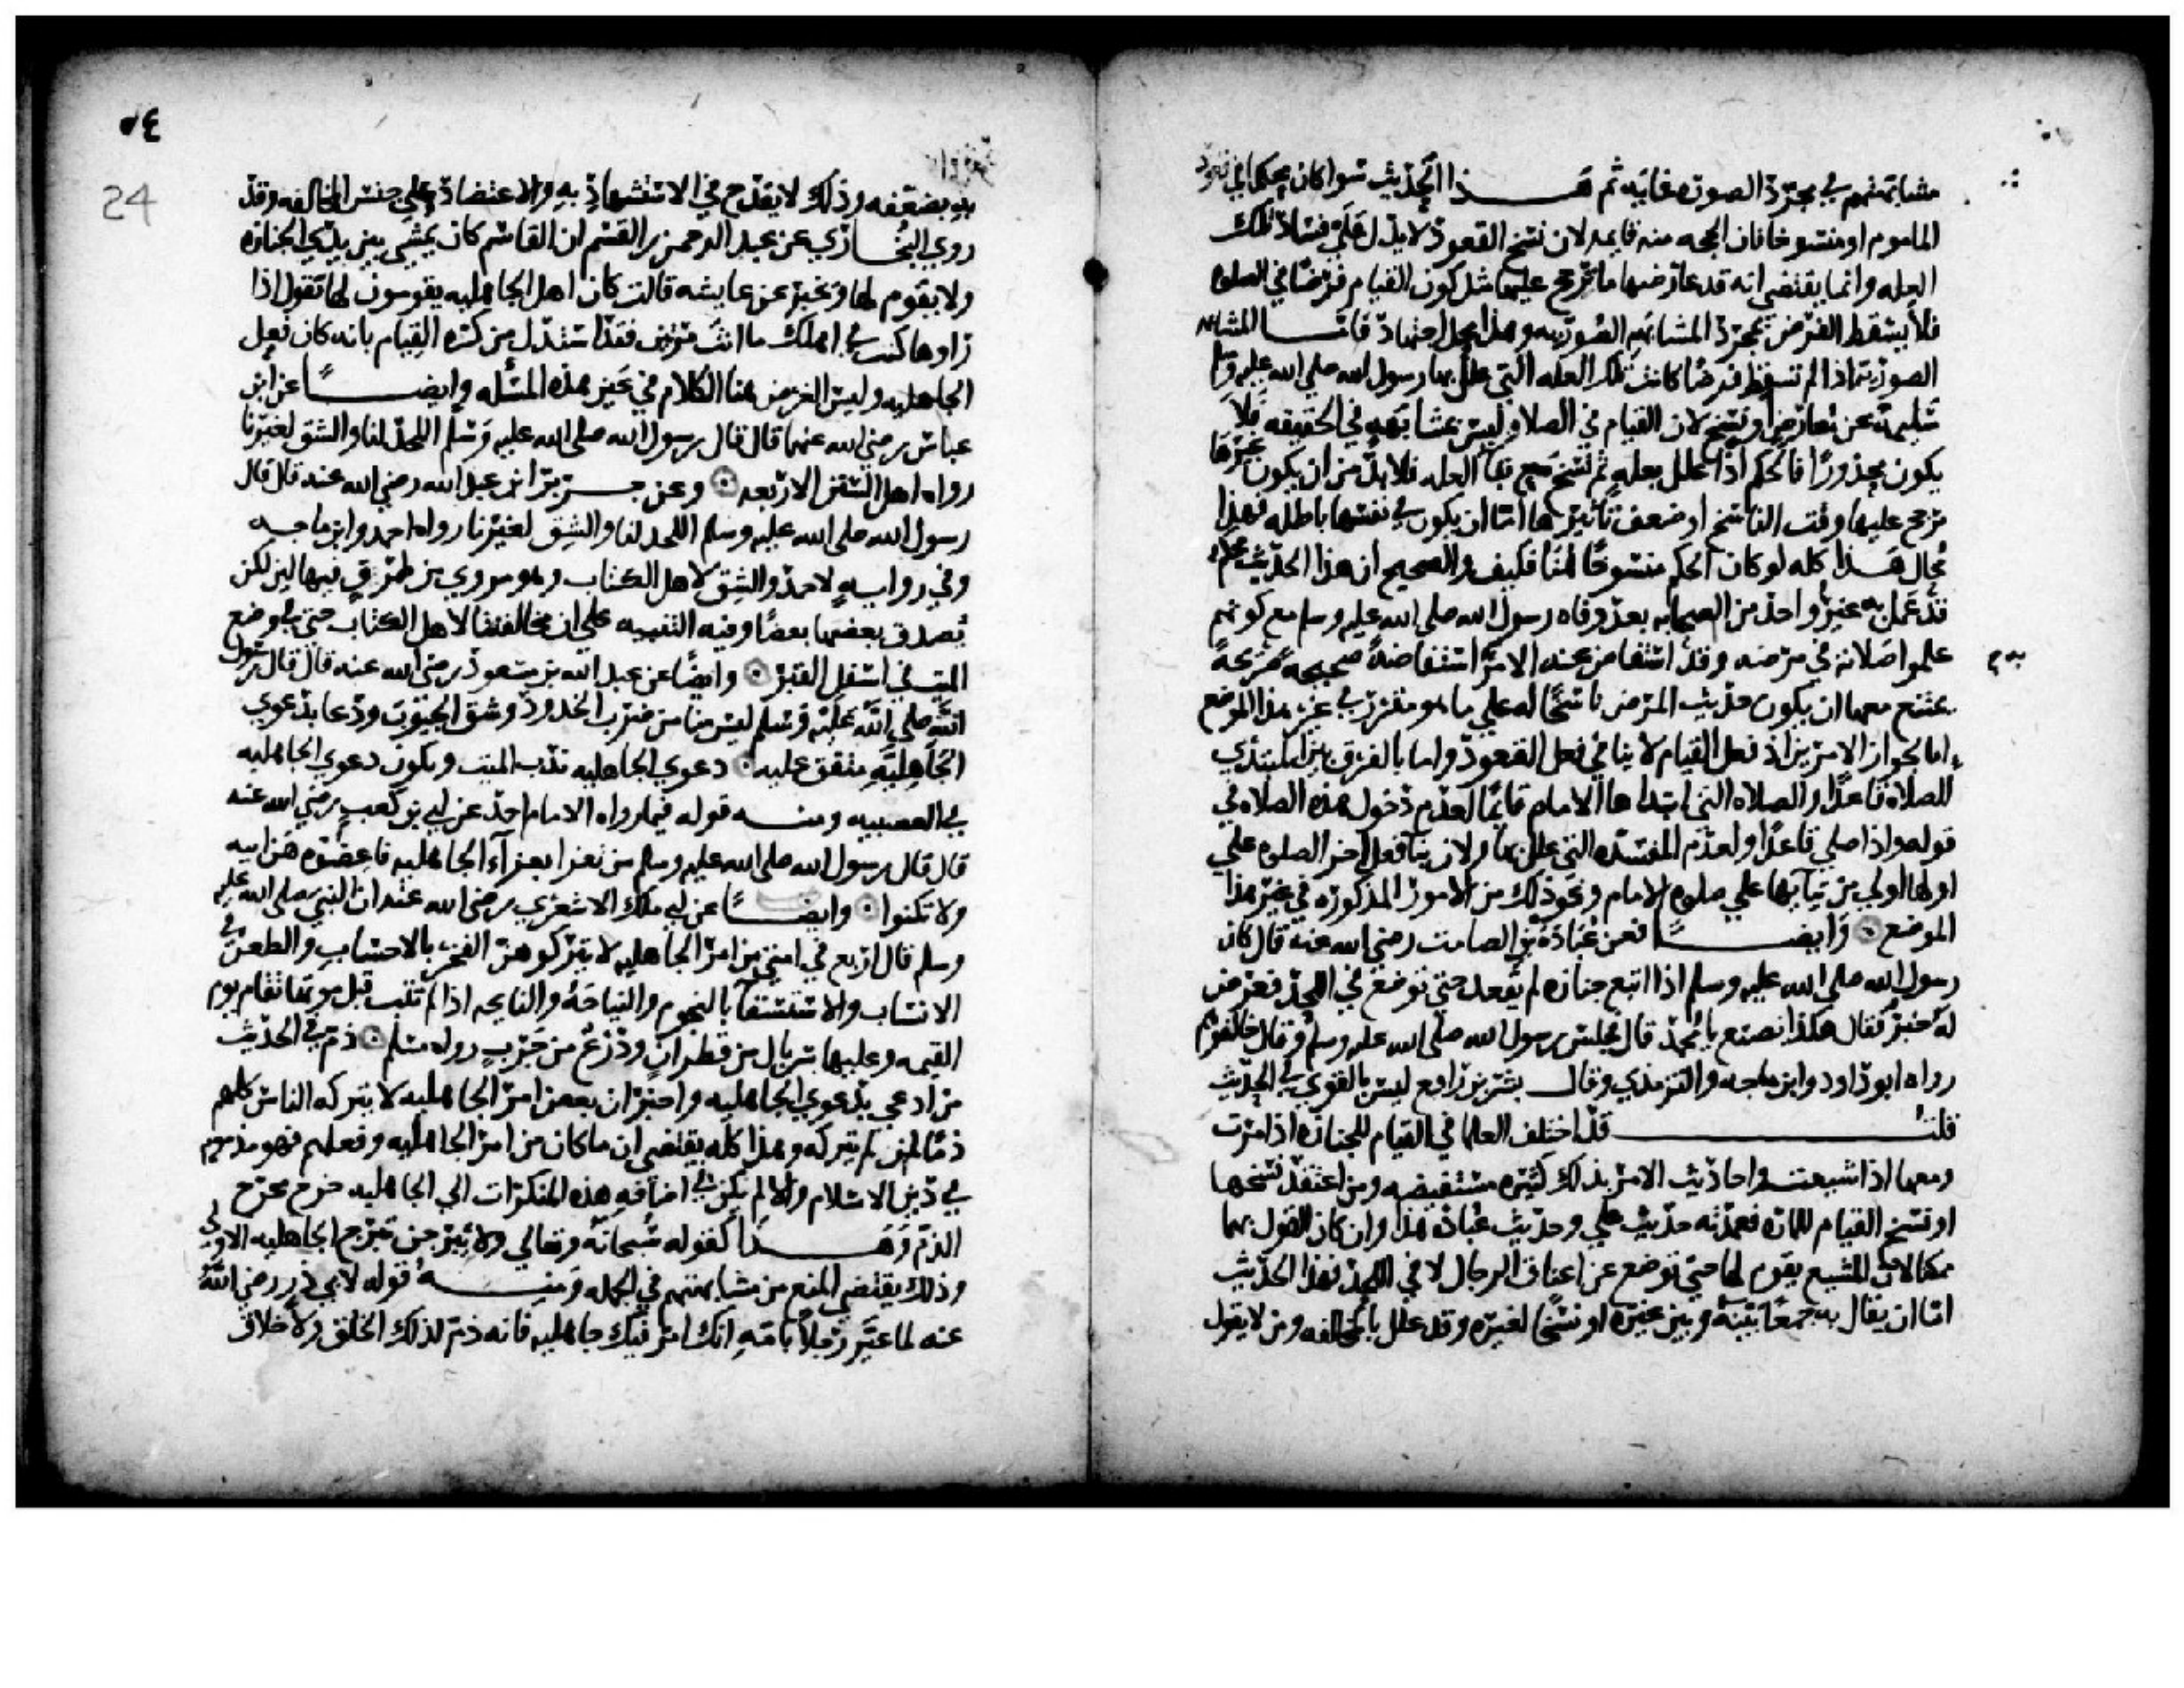 مشابهتهم في مجرد الصورة غايته ثم هذا الحديث سوا كان محكما في قعود
الماموم او منسوخا فان الحجه منه قايمه لان نسخ القعود لا يدل على فساد تلك
العله وانما يقتضي انه قد عارضها ما ترجح عليها مثل كون القيام فرضا في الصلوه
فلا يسقط الفرض بمجرد المشابهه الصوريه وهذا محل اجتهاد فاما المشابهه
الصوريه اذا لم تسقط فرضا كانت تلك العله التي علل بها رسول الله صلى الله عليه وسلم
سليمة عن معارض او نسخ لان القيام في الصلاه ليس بمشابهه في الحقيقه فلا
يكون محذورا فالحكم اذا علل بعله ثم نسخ مع بقا العله فلا بد من ان يكون غيرها
ترجح عليها وقت الناسخ او ضعف تاثيرها اما ان يكون في نفسها باطله فهذا
محال هذا كله لو كان الحكم منسوخا هنا فكيف والصحيح ان هذا الحديث محكم
قد عمل به غير واحد من الصحابه بعد وفاه رسول الله صلى الله عليه وسلم مع كونهم
علموا صلاته في مرضه وقد استفاض عنه الامر به استفاضة صحيحة صريحة
يمتنع معها ان يكون حديث المرض ناسخا له على ما هو مقرر في غير هذا الموضع
اما بجواز الامرين اذ فعل القيام لا ينافي فعل القعود واما بالفرق بين المبتدي
للصلاه قاعدا والصلاه التي ابتداها الامام قايما لعدم دخول هذه الصلاه في
قوله واذا صلى قاعدا ولعدم المفسده التي علل بها ولان بنا فعل اخر الصلوه على
اولها اولى من بنايها على صلوه الامام ونحو ذلك من الامور المذكوره في غير هذا
الموضع وايضا فعن عبادة بن الصامت رضي الله عنه قال كان
رسول الله صلى الله عليه وسلم اذا اتبع جنازه لم يقعد حتى توضع في اللحد فعرض
له حبر فقال هكذا نصنع يا محمد قال فجلس رسول الله صلى الله عليه وسلم وقال خالفوهم
رواه ابو داود وابن ماجه والترمذي وقال بشر بن رافع ليس بالقوي في الحديث
قلت قد اختلف العلما في القيام للجنازه اذا مرت
ومعها اذا شيعت واحاديث الامر بذلك كثيره مستفيضه ومن اعتقد نسخها
او نسخ القيام للماره فعمدته حديث علي وحديث عبادة هذا وان كان القول بهما
ممكنا لان المشيع يقوم لها حتى توضع عن اعناق الرجال لا في اللحد فهذا الحديث
اما ان يقال به جمعا بينه وبين غيره او نسخا لغيره وقد علل بالمخالفه ومن لا يقول
٢٤
24
به يضعفه وذلك لا يقدح في الاستشهاد به والاعتضاد على جنس المخالفه وقد
روى البخاري عن عبد الرحمن بن القسم ان القاسم كان يمشي بين يدي الجنازه
ولا يقوم لها ويخبر عن عايشه قالت كان اهل الجاهليه يقومون لها تقول اذا
راوها كنت في اهلك ما انت مرتين فقد استدل من كره القيام بانه كان فعل
الجاهليه وليس الغرض هنا الكلام في عين هذه المسئله وايضا عن ابن
عباس رضي الله عنهما قال قال رسول الله صلى الله عليه وسلم اللحد لنا والشق لغيرنا
رواه اهل السنن الاربعه وعن جرير ابن عبد الله رضي الله عنه قال قال
رسول الله صلى الله عليه وسلم اللحد لنا والشق لغيرنا رواه احمد وابن ماجه
وفي روايه لاحمد والشق لاهل الكتاب وهو مروي من طرق فيها لين لكن
يصدق بعضها بعضا وفيه التنبيه على ان مخالفتنا لاهل الكتاب حتى في وضع
الميت في اسفل القبر وايضا عن عبد الله بن مسعود رضي الله عنه قال قال رسول
الله صلى الله عليه وسلم ليس منا من ضرب الخدود وشق الجيوب ودعا بدعوى
الجاهلية متفق عليه دعوى الجاهليه ندب الميت ويكون دعوى الجاهليه
في العصبيه ومنه قوله فيما رواه الامام احمد عن ابي بن كعب رضي الله عنه
قال قال رسول الله صلى الله عليه وسلم من تعزا بعزآء الجاهليه فاعضوه هن ابيه
ولا تكنوا وايضا عن ابي ملك الاشعري رضي الله عنه ان النبي صلى الله عليه
وسلم قال اربع في امتي من امر الجاهليه لا يتركوهن الفخر بالاحساب والطعن في
الانساب والاستسقا بالنجوم والنياحة والنايحه اذا لم تتب قبل موتها تقام يوم
القيمه وعليها سربال من قطران ودرع من جرب رواه مسلم ذم في الحديث
من ادعى بدعوى الجاهليه واخبر ان بعض امر الجاهليه لا يتركه الناس كلهم
ذما لمن لم يتركه وهذا كله يقتضي ان ما كان من امر الجاهليه وفعلهم فهو مذموم
في دين الاسلام والا لم يكن في اضافه هذه المنكرات الى الجاهليه خرج مخرج
الذم وهذا كقوله سبحانه وتعالى ولا تبرجن تبرج الجاهليه الاولى
وذلك يقتضي المنع من مشابهتهم في الجمله ومنه قوله لابي ذر رضي الله
عنه لما عير رجلا بامه انك امرؤ فيك جاهليه فانه ذم لذلك الخلق ولاخلاق